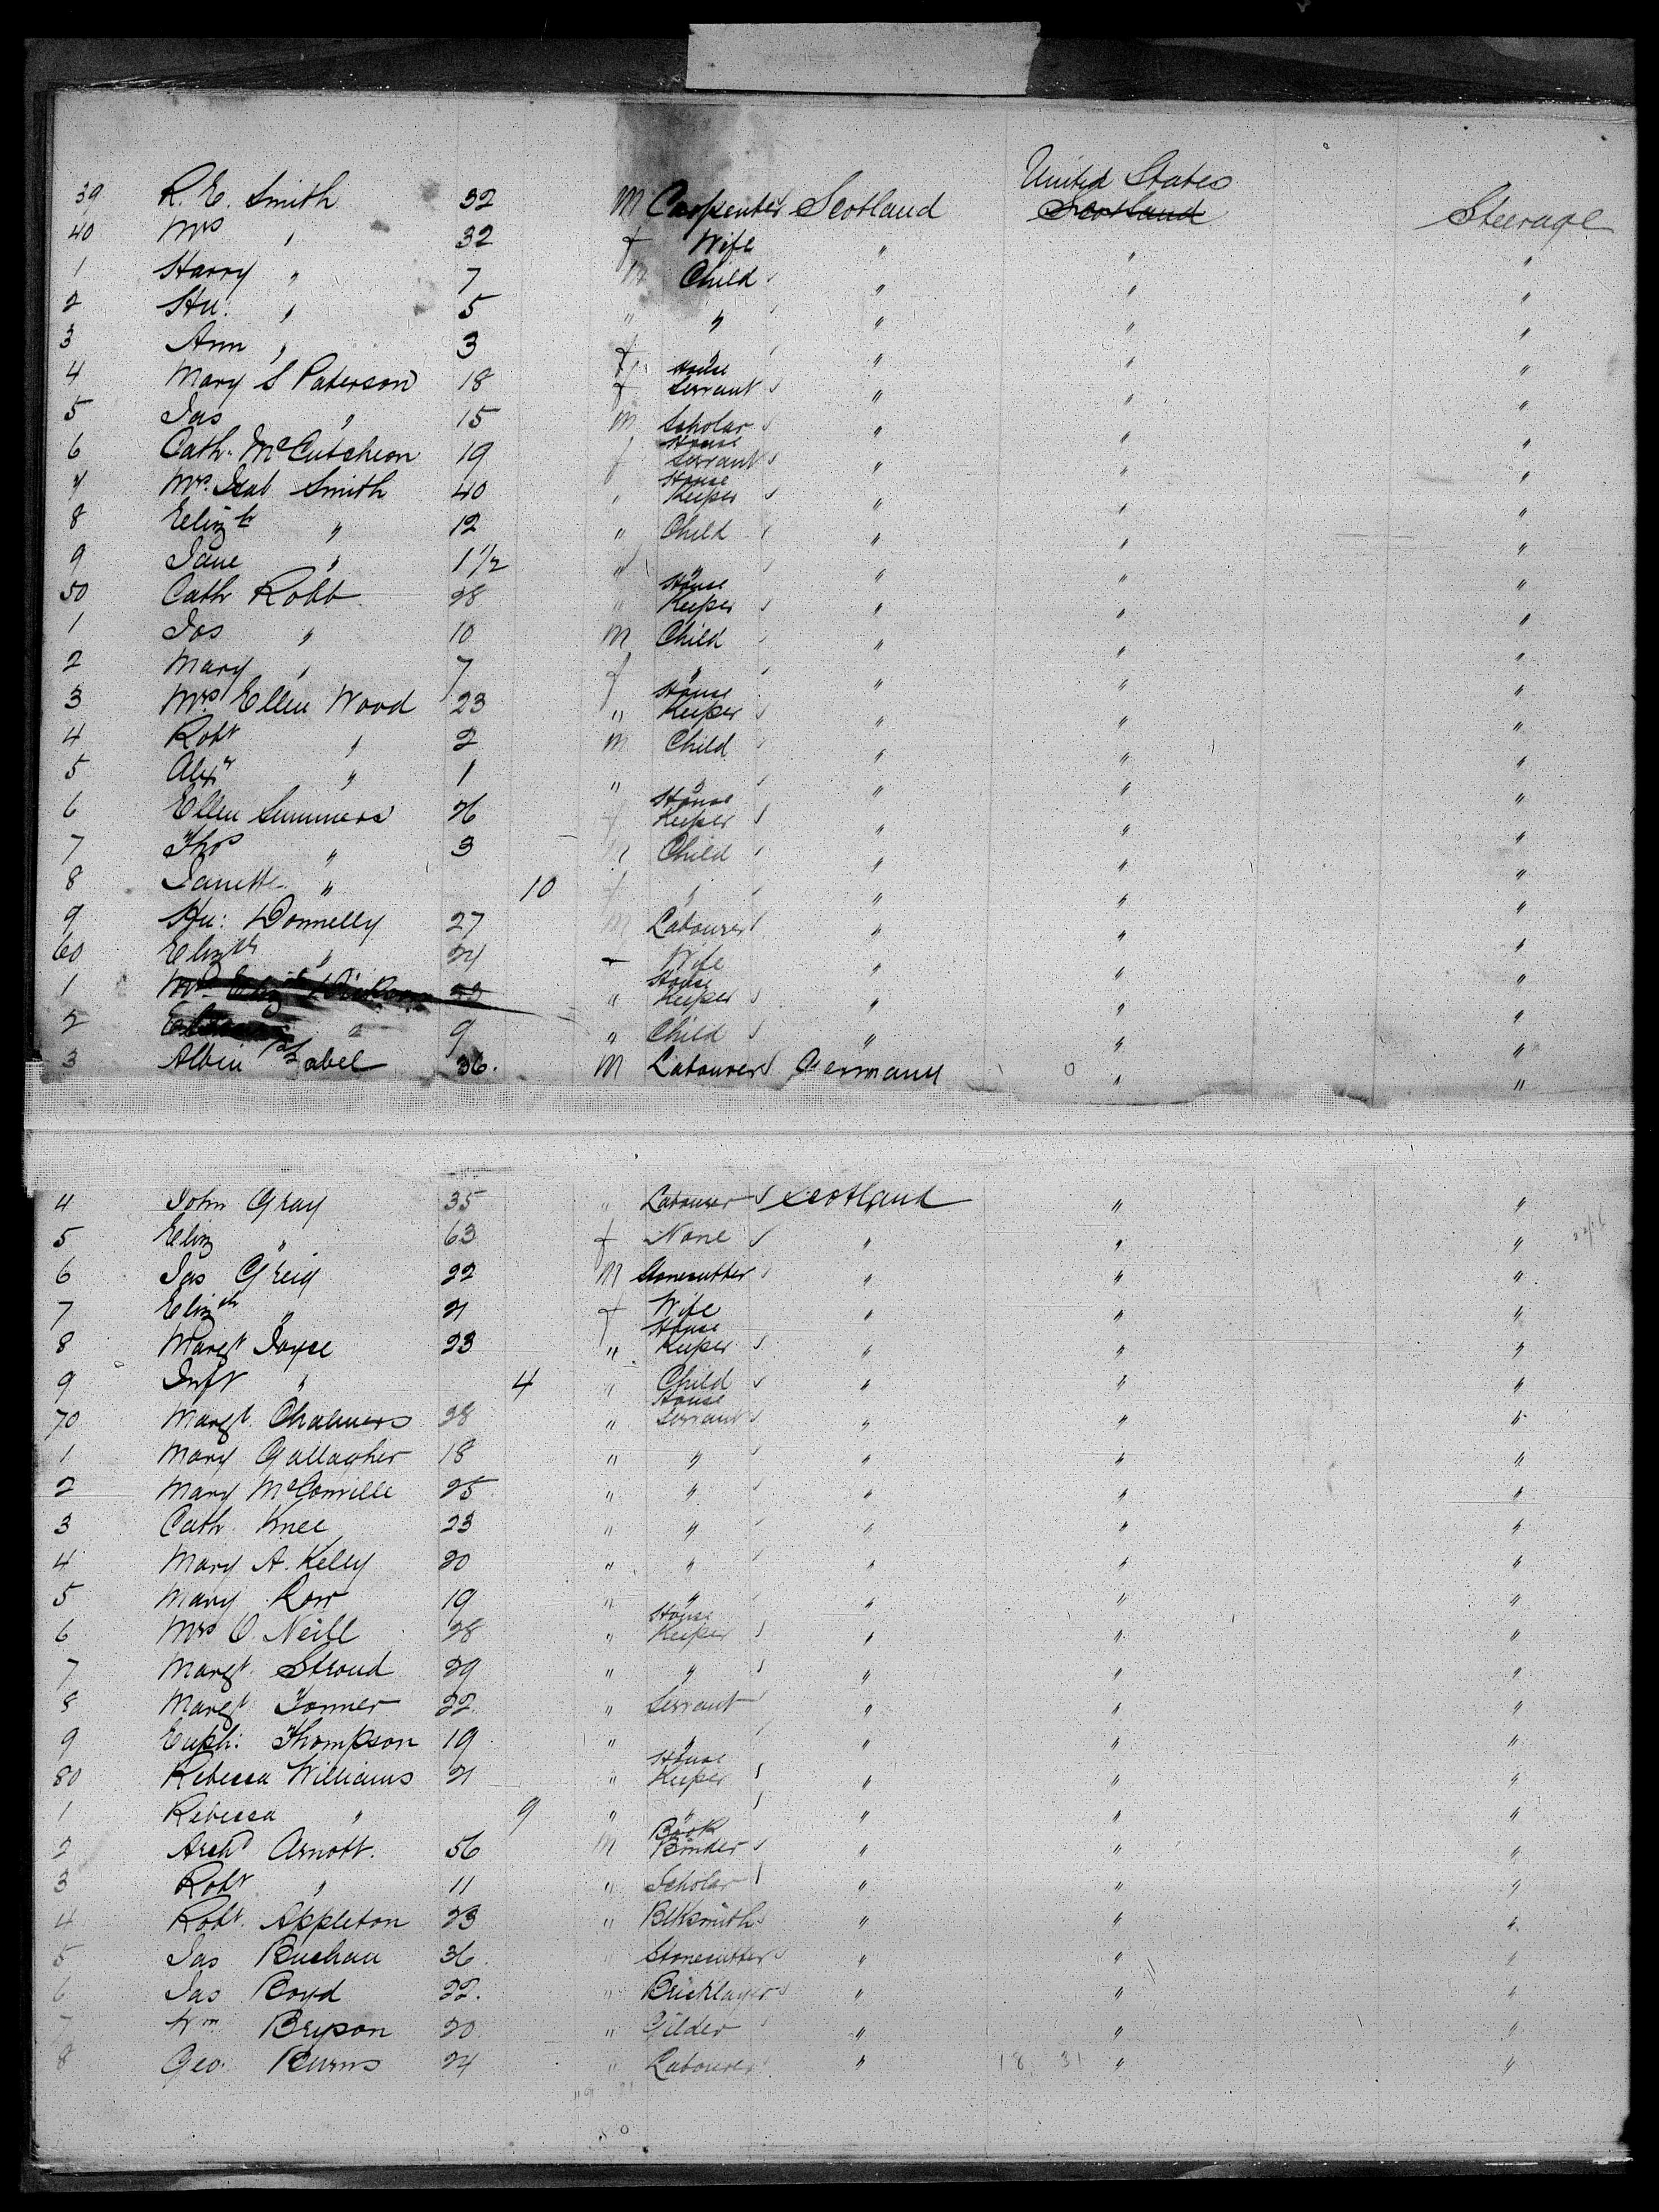 United States
39 R. E. Smith 32 M Carpenter Scotland Scotland Steerage
40 Mrs " 32 f Wife " " "
1 Harry " 7 M Child " " "
2 Hu: " 5 " " " " "
3 Ann " 3 f " " " "
4 Mary S Paterson 18 f House Servant " " "
5 Jas " 15 M Scholar " " "
6 Cath. McCutcheon 19 f House Servant " " "
7 Mrs. Isab Smith 40 " House Keeper " " "
8 Elizth " 12 " Child " " "
9 Jane " 1 1/2 " " " " "
50 Cath Robb 28 " House Keeper " " "
1 Jos " 10 M Child " " "
2 Mary " 7 f " " " "
3 Mrs. Ellen Wood 23 " House Keeper " " "
4 Robt " 2 M Child " " "
5 Alexr " 1 " " " " "
6 Ellen Summers 26 f House Keeper " " "
7 Thos " 3 M Child " " "
8 Janette " 10 f " " " "
9 Hu: Donnelly 27 M Labourer " " "
60 Elizth " 24 Wife " " "
1 Mrs " House Keeper " " "
2 " 9 " Child " " "
3 Albin abel 36. M Labourer Germany " "
4 John Gray 35 " Labourer Scotland " "
5 Eliz " 63 f None " " "
6 Jas Greig 22 M Stonecutter " " "
7 Elizth " 21 f Wife " " "
8 Margt Joyce 23 " House Keeper " " "
9 Inft " 4 " Child " " "
70 Margt. Chalmers 28 " House Servant " " "
1 Mary Gallagher 18 " " " " "
2 Mary McConville 25 " " " " "
3 Cath. Knee 23 " " " " "
4 Mary A. Kelly 20 " " " " "
5 Mary Row 19 " " " " "
6 Mrs O. Neill 28 " House Keeper " " "
7 Margt. Stroud 29 " " " " "
8 Margt Tonner 22 " Servant " " "
9 Euph: Thompson 19 " " " " "
80 Rebecca Williams 21 " House Keeper " " "
1 Rebecca " 9 " " " " "
2 Archd Arnott. 56 M Book Binder " " "
3 Robt " 11 " Scholar " " "
4 Robt. Appleton 23 " Blksmith " " "
5 Jas Buchan 36. " Stonecutter " " "
6 Jas Boyd 22. " Bricklayer " " "
7 Wm Bryson 20 " Gilder " " "
8 Geo. Burns 24 " Labourer " 18 31 " "